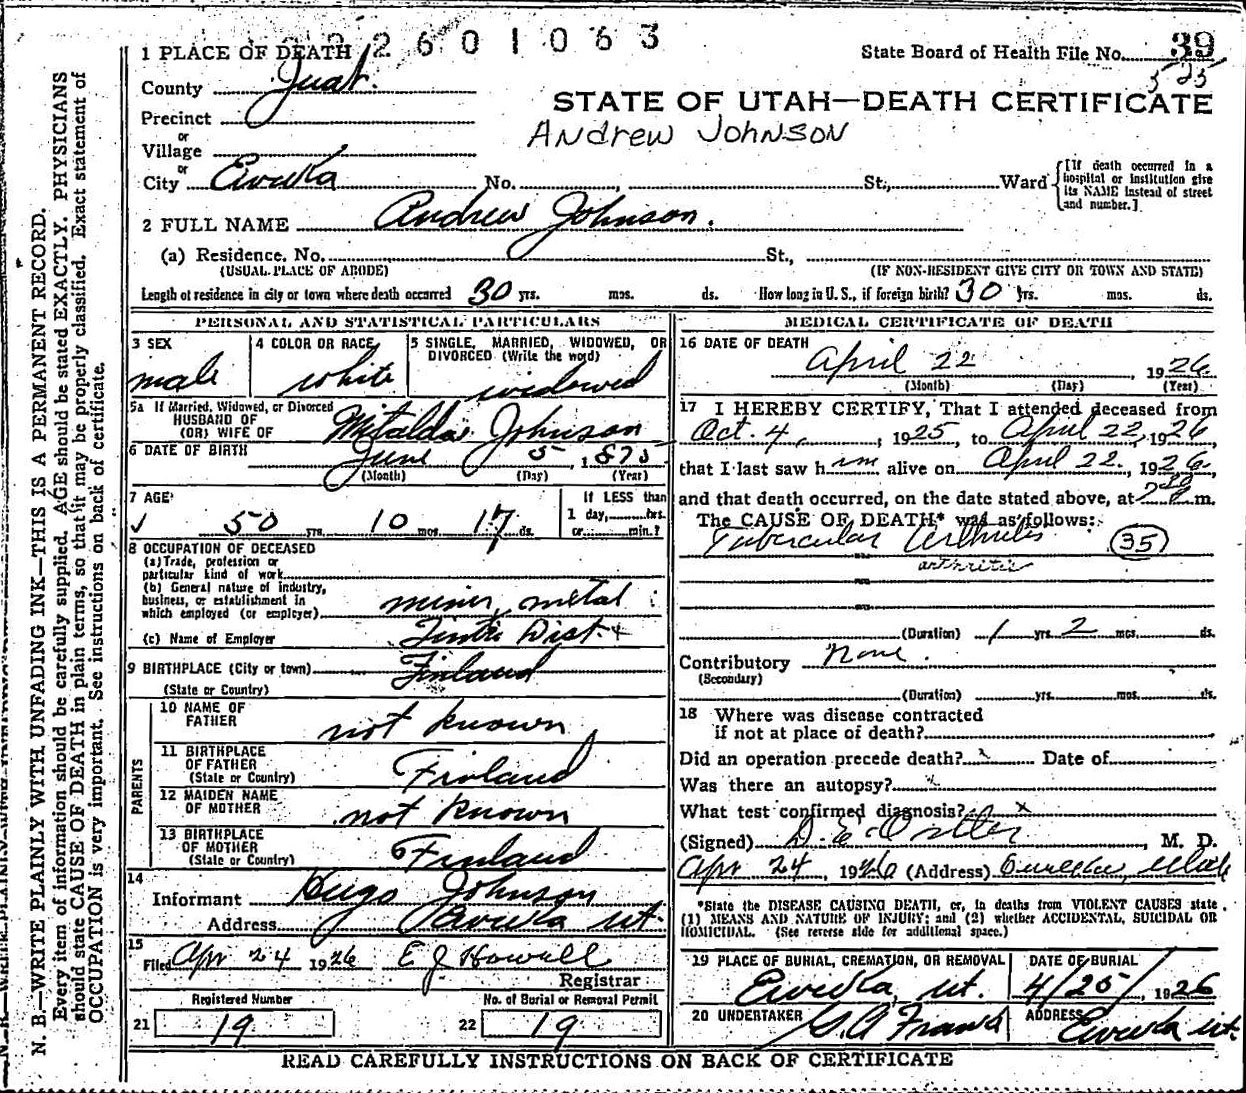 2601063
1 PLACE OF DEATH
State Board of Health File No. 39
525
County Juab.
STATE OF UTAH—DEATH CERTIFICATE
Precinct
Andrew Johnson
or
Village
or
City Eureka No. , St., Ward {[If death occurred in a hospital or institution give its NAME instead of street and number.]
2 FULL NAME Andrew Johnson.
(a) Residence. No. St.,
(USUAL PLACE OF ABODE) (IF NON-RESIDENT GIVE CITY OR TOWN AND STATE)
Length of residence in city or town where death occurred 30 yrs. mos. ds. How long in U. S., if foreign birth? 30 yrs. mos. ds.
PERSONAL AND STATISTICAL PARTICULARS
3 SEX
male
4 COLOR OR RACE
white
5 SINGLE, MARRIED, WIDOWED, OR
DIVORCED (Write the word)
widowed
5a If Married, Widowed, or Divorced
HUSBAND OF
(OR) WIFE OF Johnson
6 DATE OF BIRTH June 5, 1875
(Month) (Day) (Year)
7 AGE
50 yrs. 10 mos. 17 ds.
If LESS than
1 day, hrs.
or min.?
8 OCCUPATION OF DECEASED
(a) Trade, profession or
particular kind of work
(b) General nature of industry,
business, or establishment in
which employed (or employer) miner, metal
(c) Name of Employer Tintic Dist.
9 BIRTHPLACE (City or town) Finland
(State or Country)
PARENTS
10 NAME OF
FATHER not known
11 BIRTHPLACE
OF FATHER
(State or Country) Finland
12 MAIDEN NAME
OF MOTHER not known
13 BIRTHPLACE
OF MOTHER
(State or Country) Finland
14
Informant Hugo Johnson
Address Eureka ut.
15
Filed Apr 24 1926 E J Howell
Registrar
Registered Number
21 19
No. of Burial or Removal Permit
22 19
MEDICAL CERTIFICATE OF DEATH
16 DATE OF DEATH
April 22, 1926.
(Month) (Day) (Year)
17 I HEREBY CERTIFY, That I attended deceased from
Oct. 4, , 1925, to April 22, 1926
that I last saw him alive on April 22., 1926,
and that death occurred, on the date stated above, at m.
The CAUSE OF DEATH* was as follows:
Tubercular Arthritis (35)
arthritis
(Duration) 1 yrs. 2 mos. ds.
Contributory None.
(Secondary)
(Duration) yrs. mos. ds.
18 Where was disease contracted
if not at place of death?
Did an operation precede death? Date of
Was there an autopsy?
What test confirmed diagnosis? x
(Signed) , M. D.
Apr 24, 1926 (Address) Eureka, Utah
*State the DISEASE CAUSING DEATH, or, in deaths from VIOLENT CAUSES state
(1) MEANS AND NATURE OF INJURY; and (2) whether ACCIDENTAL, SUICIDAL OR
HOMICIDAL. (See reverse side for additional space.)
19 PLACE OF BURIAL, CREMATION, OR REMOVAL
Eureka, ut.
DATE OF BURIAL
4/25/, 1926
20 UNDERTAKER
ADDRESS
Eureka ut.
READ CAREFULLY INSTRUCTIONS ON BACK OF CERTIFICATE
N. B.—WRITE PLAINLY WITH UNFADING INK—THIS IS A PERMANENT RECORD.
Every item of information should be carefully supplied. AGE should be stated EXACTLY. PHYSICIANS
should state CAUSE OF DEATH in plain terms, so that it may be properly classified. Exact statement of
OCCUPATION is very important. See instructions on back of certificate.